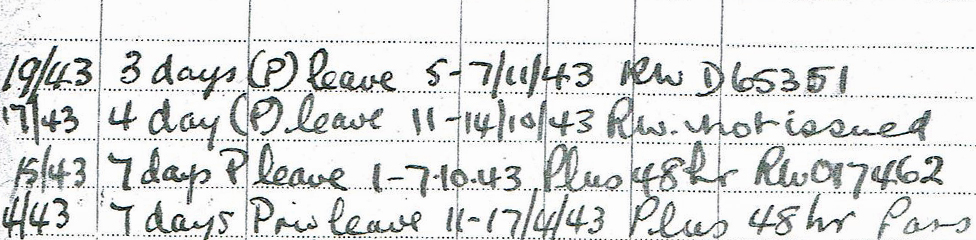 19/43 3 days (P) leave 5-7/11/43 RW D65351
17/43 4 day (P) leave 11-14/10/43 RW. not issued
15/43 7 days P leave 1-7.10.43 Plus 48hr RW 017462
4/43 7 days Priv leave 11-17/4/43 Plus 48hr Pass